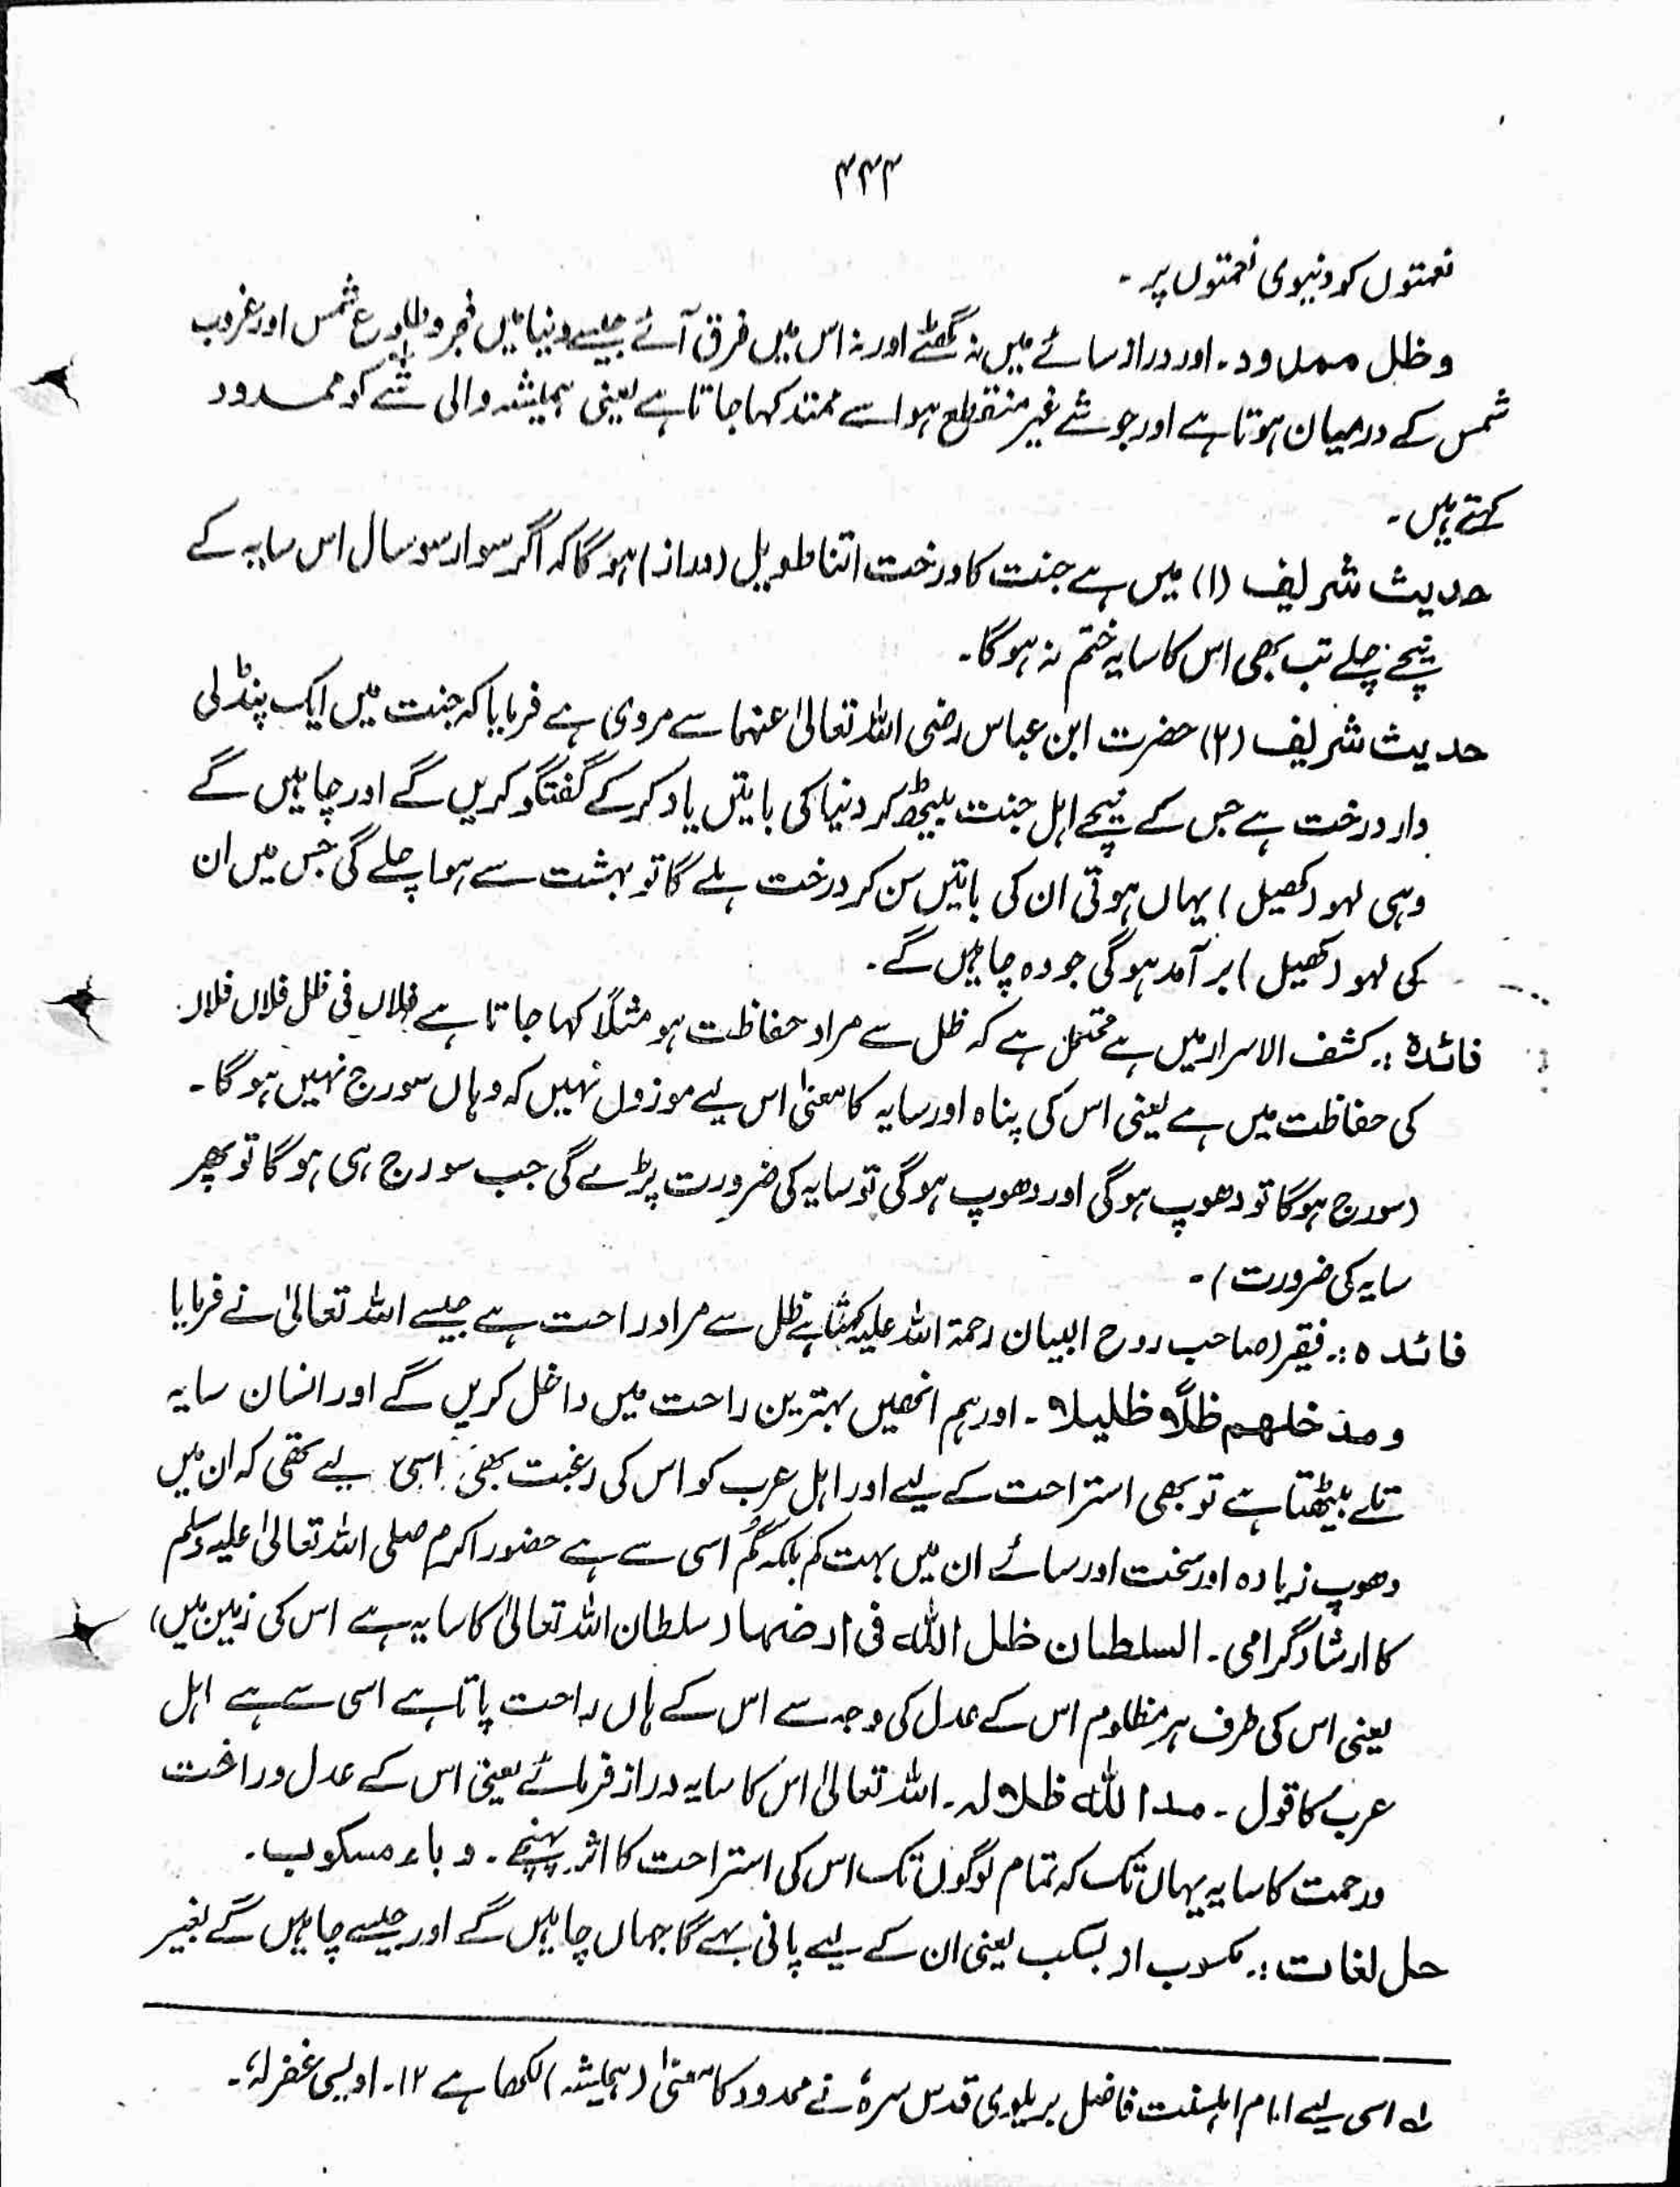 ۴۴۴
نعمتوں کو دنیوی نعمتوں پر ۔
وظل ممدود ۔ اور دراز سائے میں نہ گھٹے اور نہ اس میں فرق آئے جیسے دنیا میں فجر و طلوع شمس اور غروب
شمس کے درمیان ہوتا ہے اور جو شے غیر منقطع ہو اسے ممتد کہا جاتا ہے یعنی ہمیشہ والی شے کو ممدود
کہتے ہیں ۔
حدیث شریف (۱) میں ہے جنت کا درخت اتنا طویل (دراز) ہوگا کہ اگر سوار سو سال اس سایہ کے
نیچے چلے تب بھی اس کا سایہ ختم نہ ہوگا ۔
حدیث شریف (۲) حضرت ابن عباس رضی اللہ تعالیٰ عنہما سے مروی ہے فرمایا کہ جنت میں ایک پنڈلی
دار درخت ہے جس کے نیچے اہل جنت بیٹھ کر دنیا کی باتیں یاد کر کے گفتگو کریں گے اور چاہیں گے
وہی لہو (کھیل) یہاں ہوتی ان کی باتیں سن کر درخت ہلے گا تو بہشت سے ہوا چلے گی جس میں ان
کی لہو (کھیل) برآمد ہوگی جو وہ چاہیں گے ۔
فائدہ :۔ کشف الاسرار میں ہے محتمل ہے کہ ظل سے مراد حفاظت ہو مثلاً کہا جاتا ہے فلاں فی ظل فلاں فلاں
کی حفاظت میں ہے یعنی اس کی پناہ اور سایہ کا معنیٰ اس لیے موزوں نہیں کہ وہاں سورج نہیں ہوگا ۔
(سورج ہوگا تو دھوپ ہوگی اور دھوپ ہوگی تو سایہ کی ضرورت پڑے گی جب سورج ہی ہوگا تو پھر
سایہ کی ضرورت) ۔
فائدہ :۔ فقیر (صاحب روح البیان رحمۃ اللہ علیہ کہتا ہے ظل سے مراد راحت ہے جیسے اللہ تعالیٰ نے فرمایا
و مندخلهم ظلاً ظلیلا ۔ اور ہم انھیں بہترین راحت میں داخل کریں گے اور انسان سایہ
تلے بیٹھتا ہے تو بھی استراحت کے لیے اور اہل عرب کو اس کی رغبت بھی اسی لیے تھی کہ ان میں
دھوپ زیادہ اور سخت اور سائے ان میں بہت کم بلکہ گم اسی سے ہے حضور اکرم صلی اللہ تعالیٰ علیہ وسلم
کا ارشاد گرامی ۔ السلطان ظل اللہ فی ارضہا (سلطان اللہ تعالیٰ کا سایہ ہے اس کی زمین میں)
یعنی اس کی طرف ہر مظلوم اس کے عدل کی وجہ سے اس کے ہاں راحت پاتا ہے اسی سے ہے اہل
عرب کا قول ۔ مد اللہ ظلالہ ۔ اللہ تعالیٰ اس کا سایہ دراز فرمائے یعنی اس کے عدل و رافت
و رحمت کا سایہ یہاں تک کہ تمام لوگوں تک اس کی استراحت کا اثر پہنچے ۔ و باء مسکوب ۔
حل لغات :۔ مکسوب از بسکب یعنی ان کے لیے پانی بہے گا جہاں چاہیں گے اور جیسے چاہیں گے بغیر
لے اسی لیے امام اہلسنت فاضل بریلوی قدس سرہٗ نے ممدود کا معنیٰ (ہمیشہ) لکھا ہے ۱۲ ۔ اویسی غفرلہٗ ۔